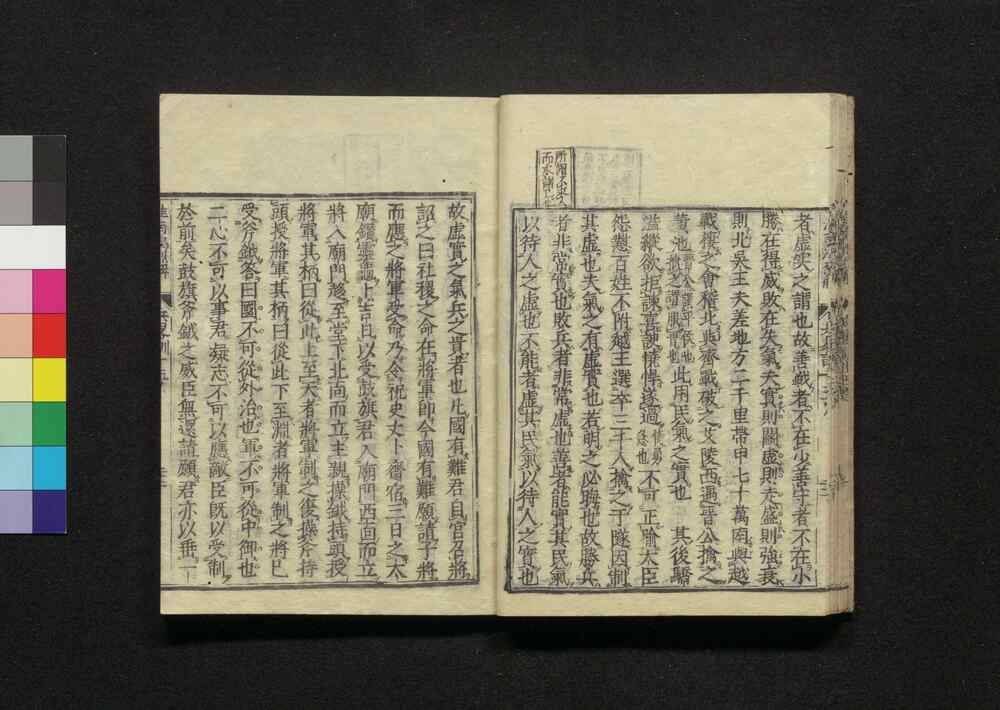 者虛實之謂也故善戰者不在少善守者不在小
勝在得威敗在失氣夫實則鬭虛則走盛則強衰
則北吳王夫差地方二千里帶甲七十萬南與越
戰棲之會稽北與齊戰破之艾陵西遇晉公擒之
黃池此用民氣之實也 其後驕
溢縱欲拒諫喜諛憢悍遂過 不可正喻大臣
怨懟百姓不附越王選卒三千人擒之干隧因制
其虛也夫氣之有虛實也若明之必晦也故勝兵
者非常實也敗兵者非常虛也善者能實其民氣
以待人之虛也不能者虛其民氣以待人之實也
故虛實之氣兵之貴者也凡國有難君自宮召將
詔之曰社稷之命在將軍即今國有難願請子將
而應之將軍受命乃令祝史太卜齋宿三日之太
廟鑽靈龜卜吉日以受鼓旗君入廟門西面而立
將入廟門趨至堂下北面而立主親操鉞持頭授
將軍其柄曰從此上至天者將軍制之復操斧持
頭授將軍其柄曰從此下至淵者將軍制之將已
受斧鉞答曰國不可從外治也軍不可從中御也
二心不可以事君疑志不可以應敵臣既以受制
於前矣鼓旗斧鉞之威臣無還請願君亦以無一